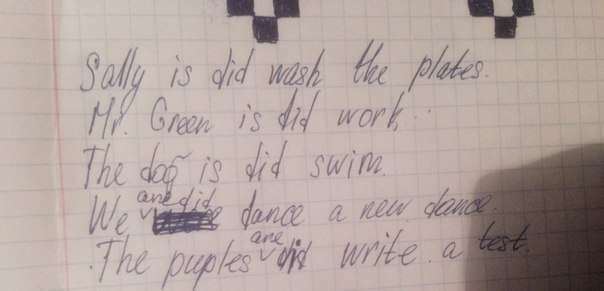 Sally is did wash the plates.
Mr. Green is did work.
The dog is did swim.
We are did dance a new dance.
The puples are did write a test.